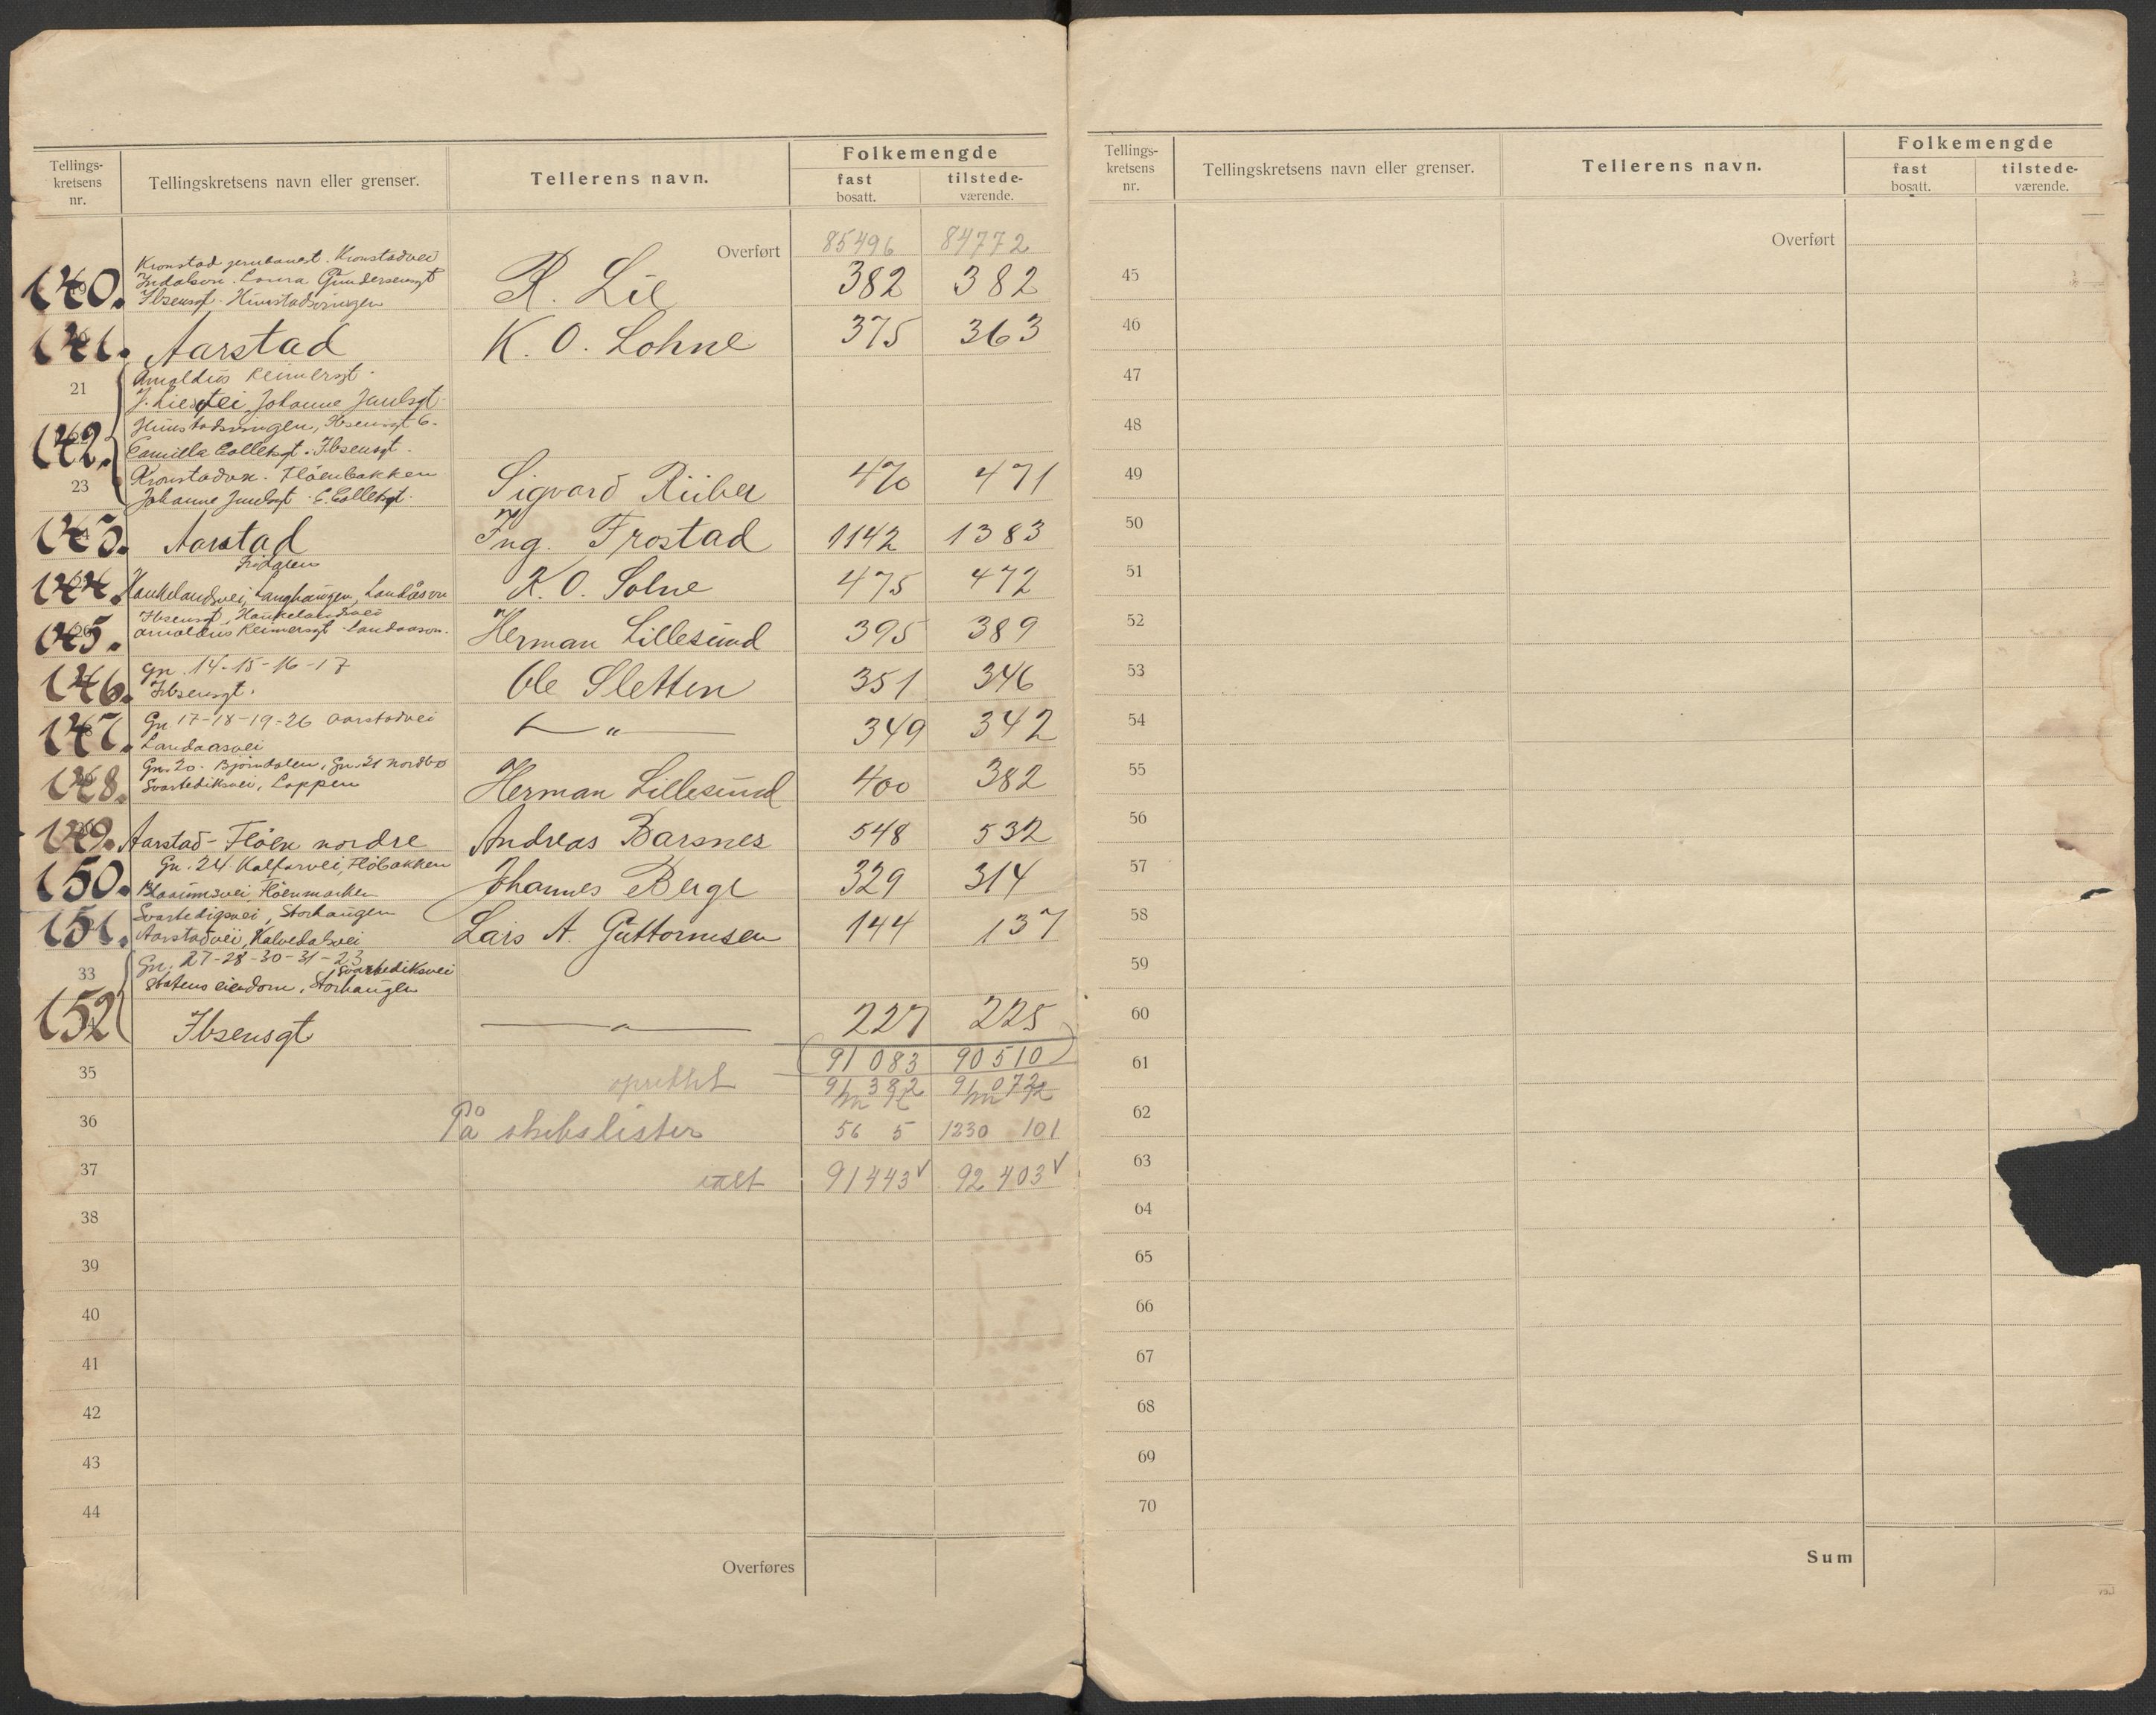 Tellings-
kretsens
nr.
Tellingskretsens navn eller grenser.
Tellerens navn.
Folkemengde
fast
bosatt.
tilstede-
værende.
Overført 85496 84772
140. Kronstad jernbanest. Kronstadvei
Inndalsvn. Laura Gundersensgt
Ibsensgt. Hunstadsvingen
R. Lie 382 382
141. Aarstad K. O. Lohne 375 363
21 Arnoldus Reimersgt.
J. Liesvei Johanne Juulsgt
142. Hunstadsvingen, Ibsensgt 6.
Camilla Colletsgt. Ibsensgt.
23 Kronstadvn. Flöenbakken
Johanne Juulsgt. C. Colletsgt.
Sigvard Riiber 470 471
143. Aarstad Ing. Frostad 1142 1383
Fridalen
144. Haukelandsvei, Langhaugen, Landåsvn K. O. Solne 475 472
145. Ibsensgt, Haukelandsvei
Arnoldus Reimersgt. Landaasvn.
Herman Lillesund 395 389
146. Gn. 14-15-16-17
Ibsensgt.
Ole Sletten 351 346
147. Gn. 17-18-19-26 Aarstadvei
Landaasvei
— " — 349 342
148. Gn. 20. Björndalen, Gn. 21 nordbö
Svartediksvei, Loppen
Herman Lillesund 400 382
149. Aarstad - Flöen nordre Andreas Barsnes 548 532
150. Gn. 24. Kalfarvei, Flöbakken
Blaauwsvei, Flöenmarken
Johannes Berge 329 314
151. Svartedigsvei, Storhaugen
Aarstadvei, Kalvedalsvei
Lars A. Guttormsen 144 137
33 Gn. 27-28-30-31-23
Svartediksvei
Statens eiendom, Storhaugen
152 Ibsensgt — " — 227 225
91 083 90 510
35 oprettet 91 382 91 072
m k m k
36 På skibslister 56 5 1230 101
37 ialt 91443 v 92 403 v
38
39
40
41
42
43
44
Overføres
Tellings-
kretsens
nr.
Tellingskretsens navn eller grenser.
Tellerens navn.
Folkemengde
fast
bosatt.
tilstede-
værende.
Overført
45
46
47
48
49
50
51
52
53
54
55
56
57
58
59
60
61
62
63
64
65
66
67
68
69
70
Sum